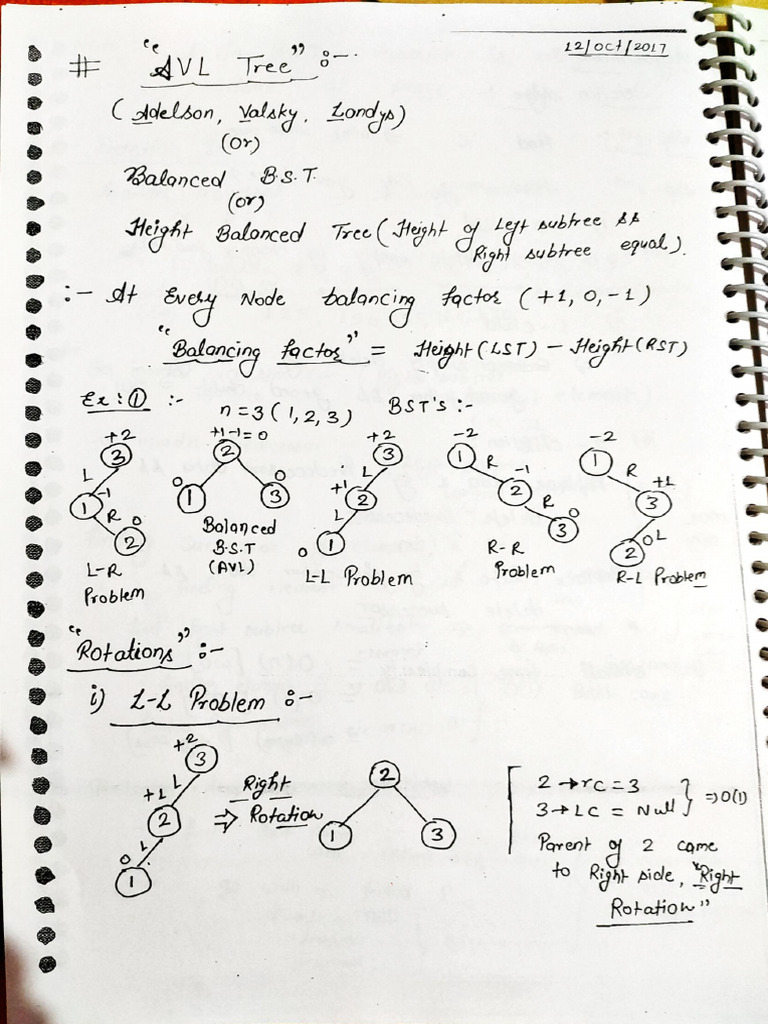 12/Oct/2017
# "AVL Tree" :-
(Adelson, Valsky, Londys)
(Or)
Balanced B.S.T.
(or)
Height Balanced Tree (Height of Left subtree &&
Right subtree equal).
:- At Every Node balancing factor (+1, 0, -1)
"Balancing factor" = Height(LST) - Height(RST)
Ex:① :- n=3 (1,2,3) BST's :-
+2 3 L 1 -1 R 2 0
L-R
Problem
+1-1=0 2 0 1 3 0
Balanced
B.S.T
(AVL)
+2 3 L +1 2 L 0 1
L-L Problem
-2 1 R -1 2 R 0 3
R-R
Problem
-2 1 R +1 3 L 2 0
R-L Problem
"Rotations" :-
i) L-L Problem :-
+2 3 L +1 2 L 0 1
Right
⇒ Rotation
2
1 3
2→rc = 3
3→LC = Null } ⇒O(1)
Parent of 2 came
to Right side, "Right
Rotation"